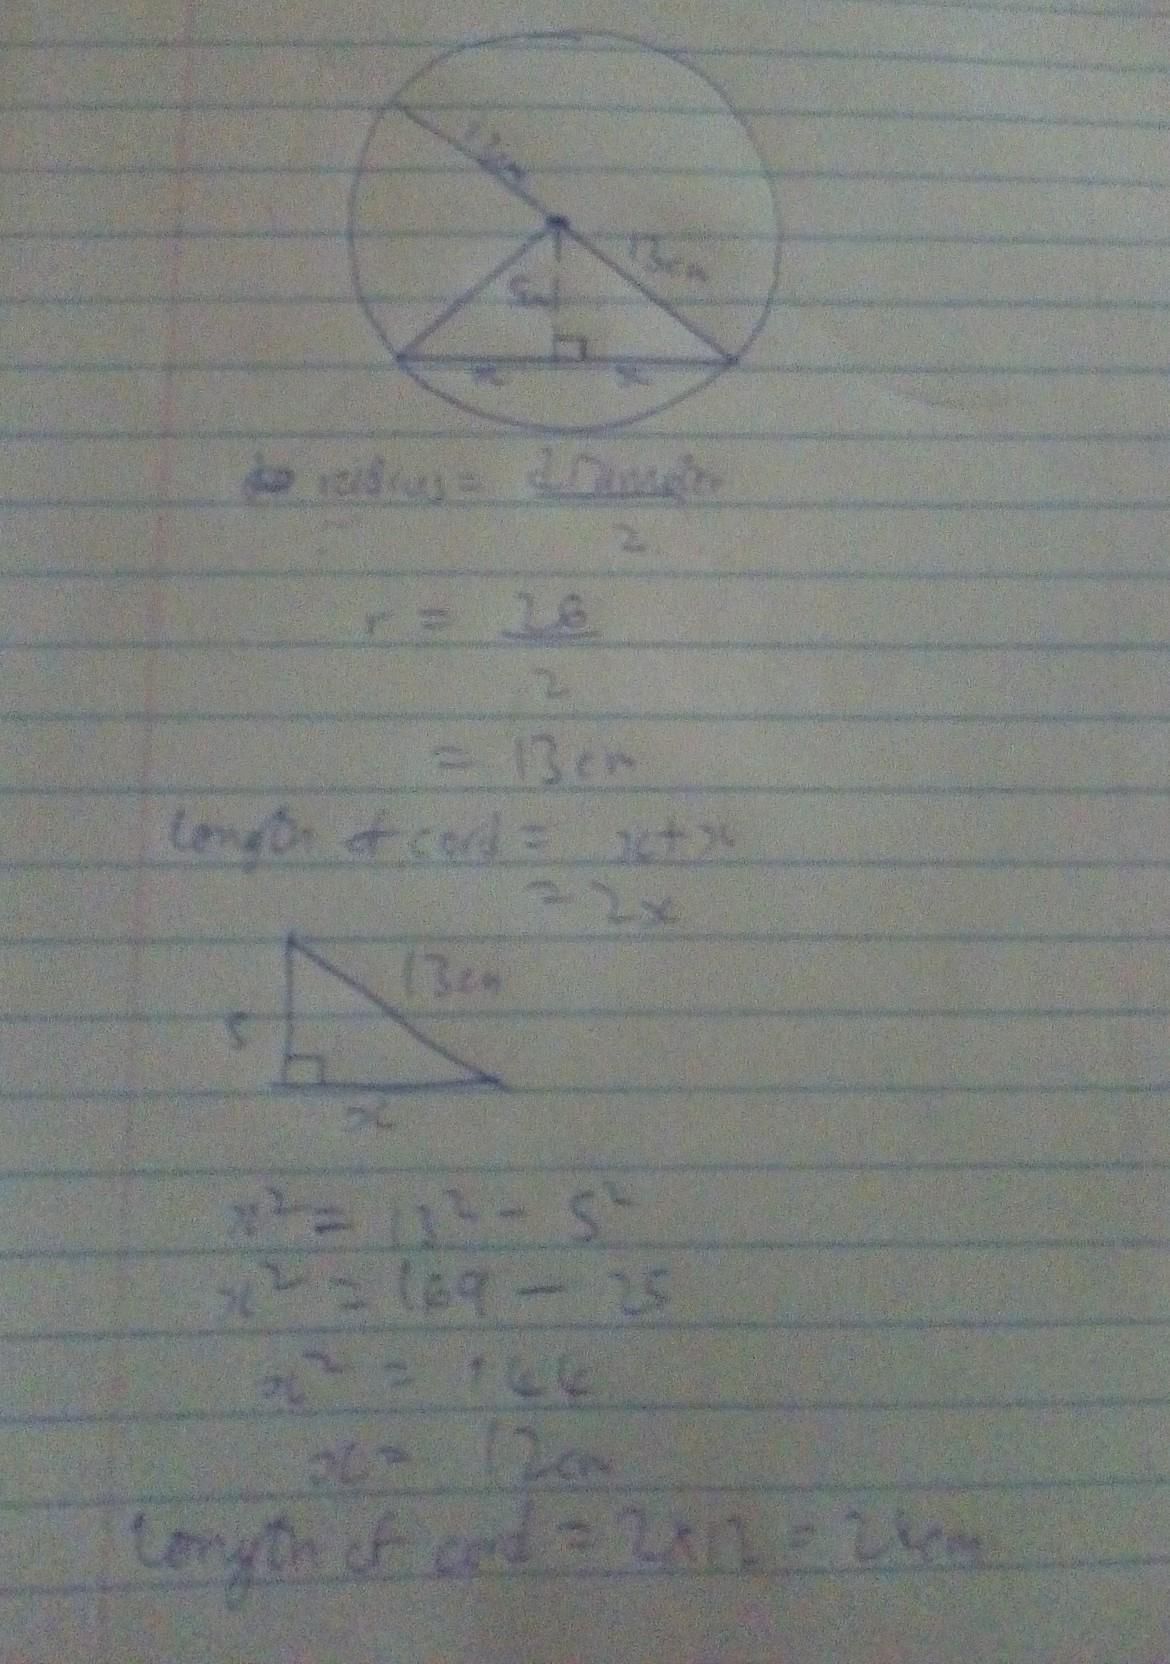 13cm
13cm
5cm
x x
radius = Diameter
2
r = 26
2
= 13cm
Length of cord = x+x
= 2x
13cm
5
x
x² = 13² - 5²
x² = 169 - 25
x² = 144
x = 12cm
Length of cord = 2x12 = 24cm